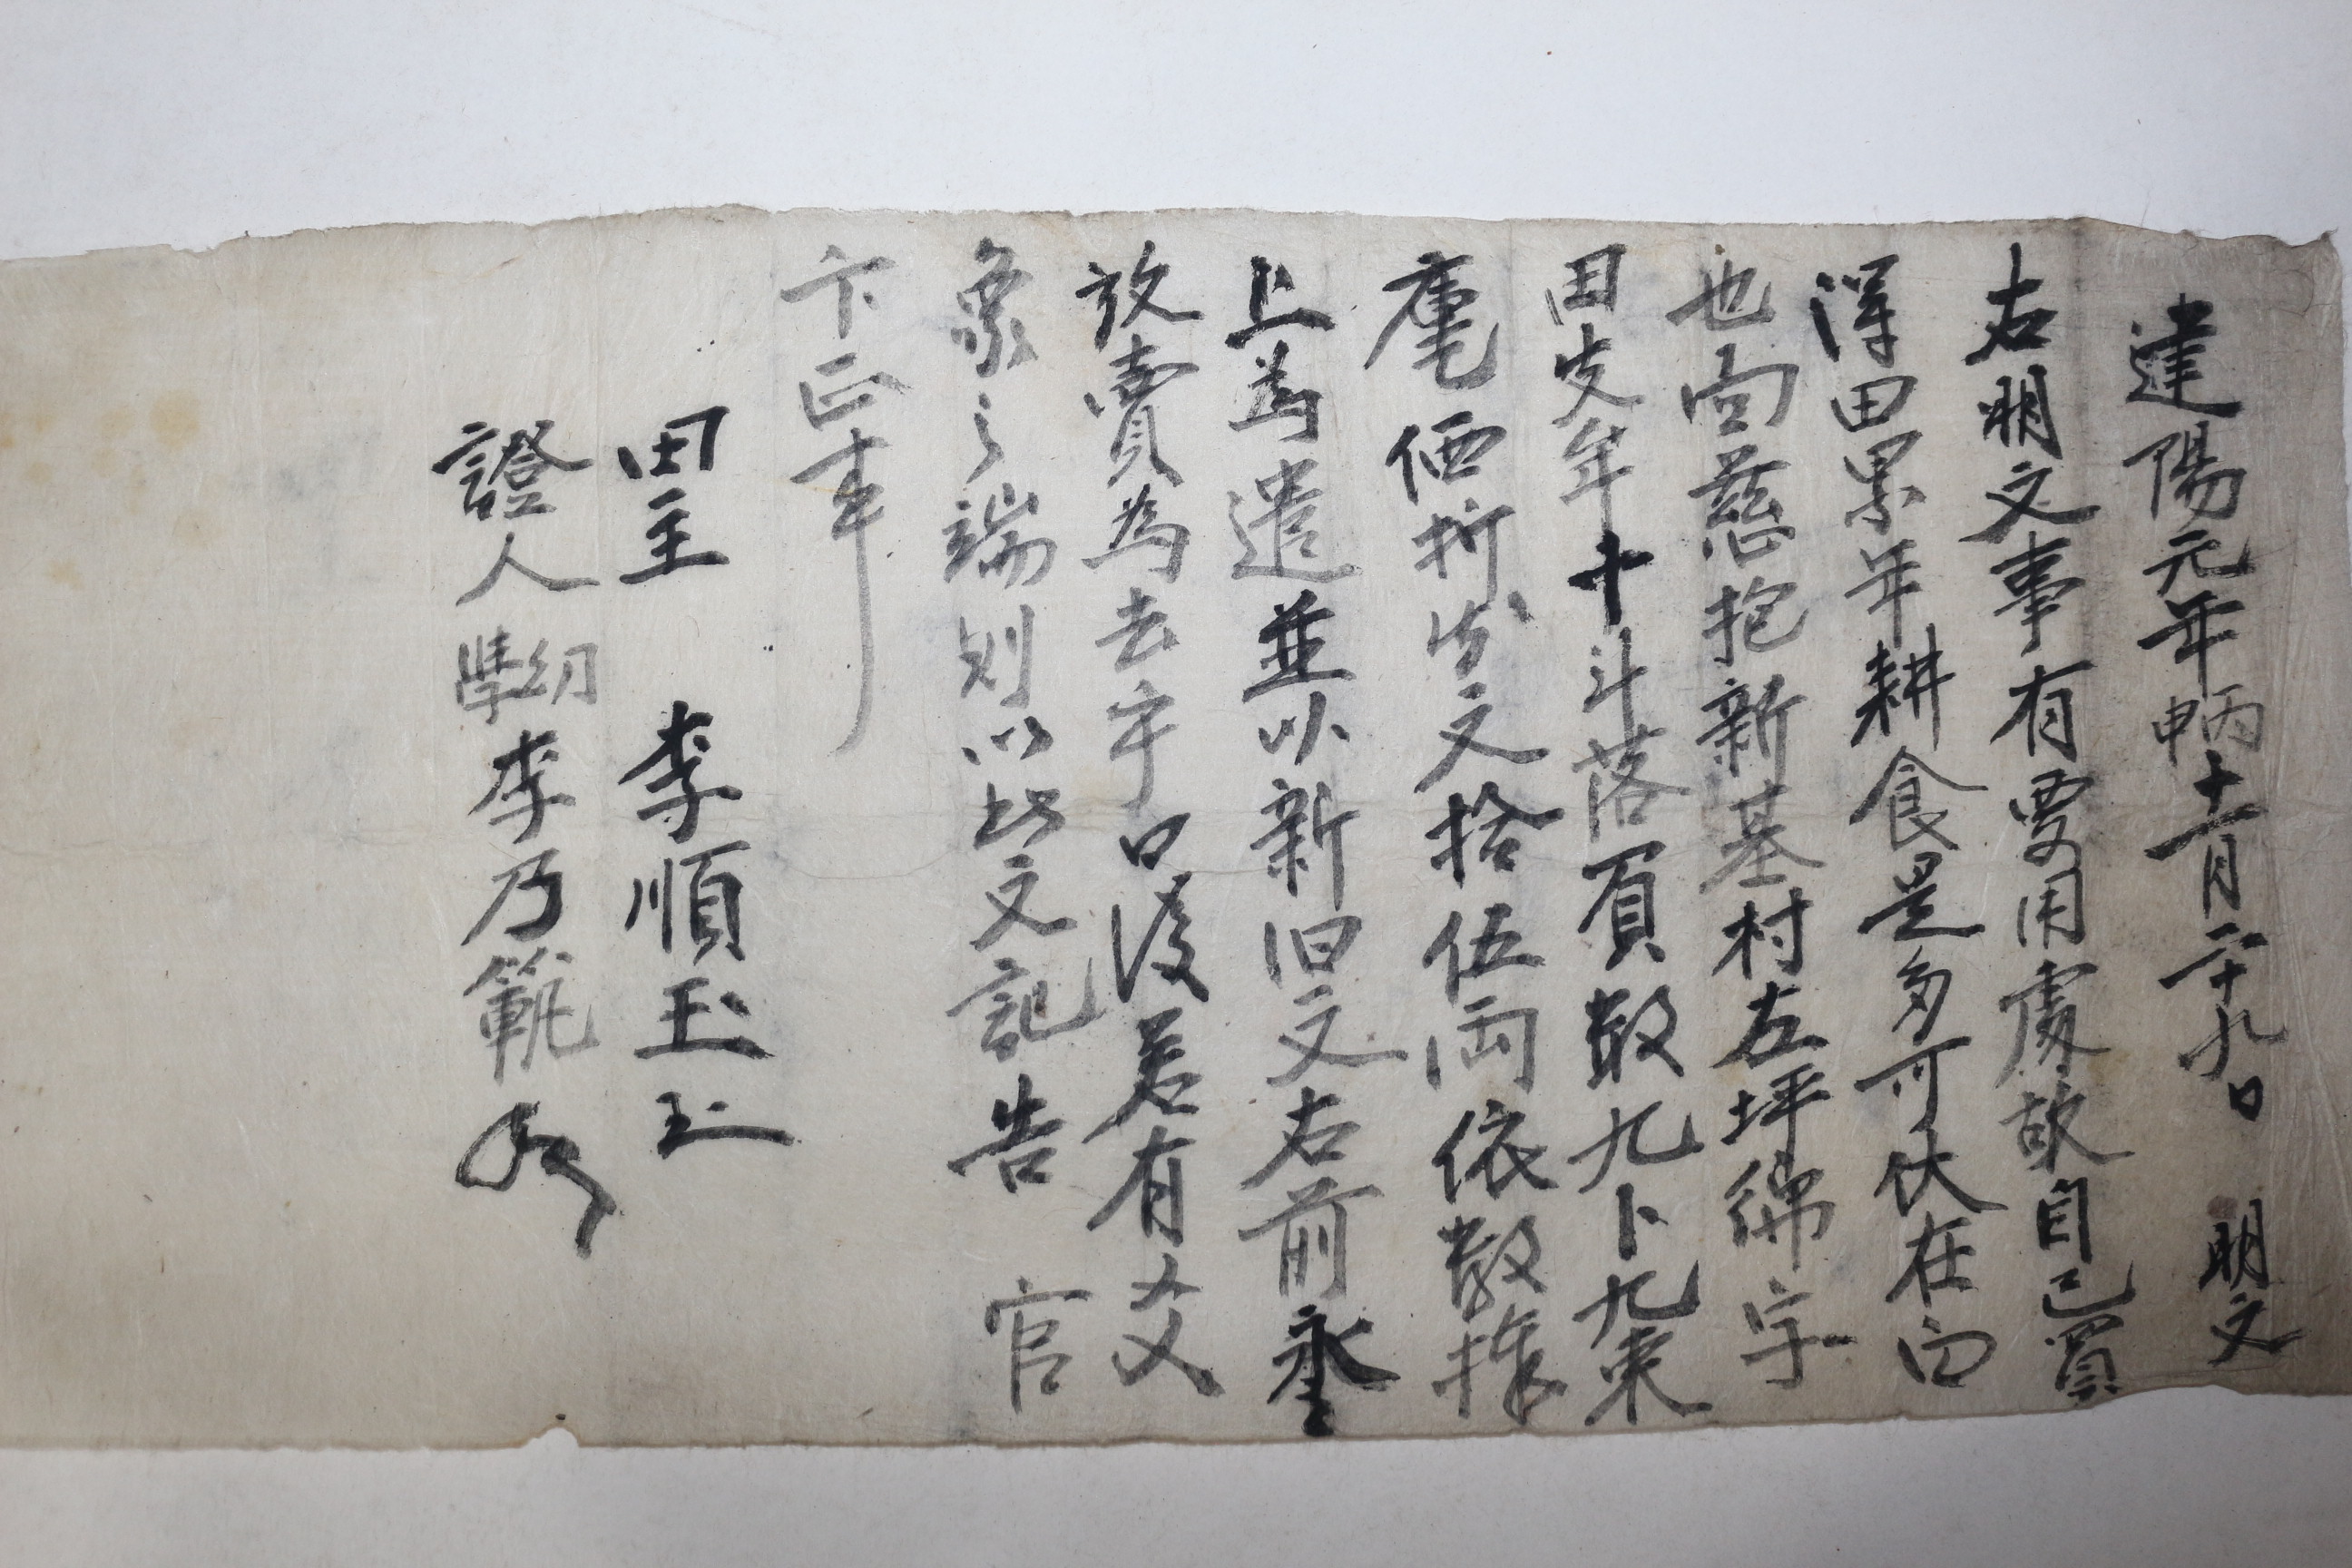 建陽元年丙申十一月二十九日 明文
右明文事有要用處故自己買
得田累年耕食是多可伏在向
也面慈抱新基村左坪綿字
田 年十斗落負数九卜九束
庫価折 文拾伍両依数捧
上為遣並以新旧文右前永
放賣為去乎日後若有爻
象之端則以此文記告 官
卞正事
田主 李順玉
證人 幼學李乃範